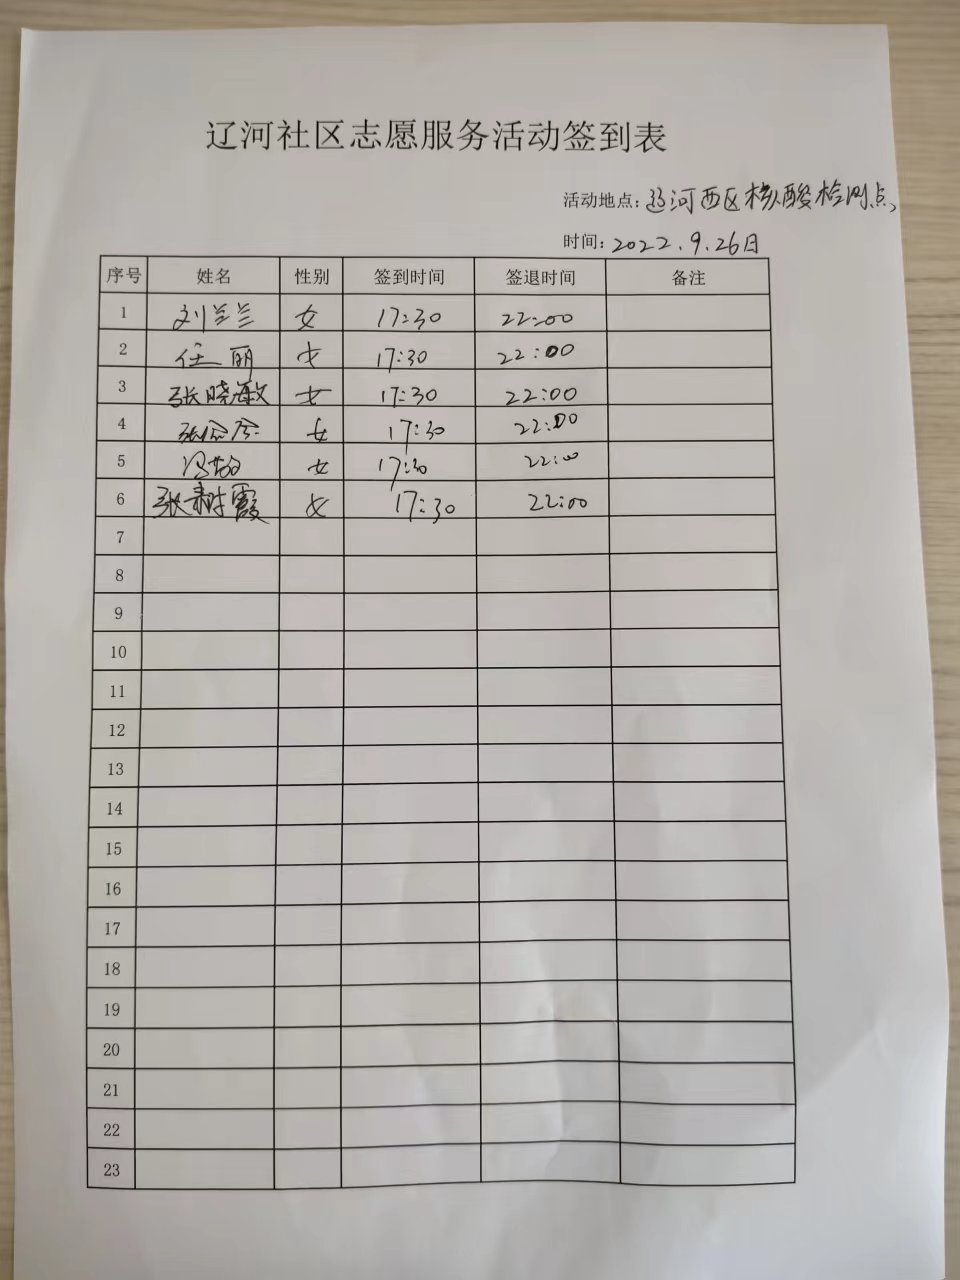 辽河社区志愿服务活动签到表
活动地点：辽河西区核酸检测点
时间：2022.9.26日
序号 姓名 性别 签到时间 签退时间 备注
1 刘兰兰 女 17:30 22:00
2 任丽 女 17:30 22:00
3 张晓敏 女 17:30 22:00
4 女 17:30 22:00
5 女 17:30 22:00
6 女 17:30 22:00
7
8
9
10
11
12
13
14
15
16
17
18
19
20
21
22
23